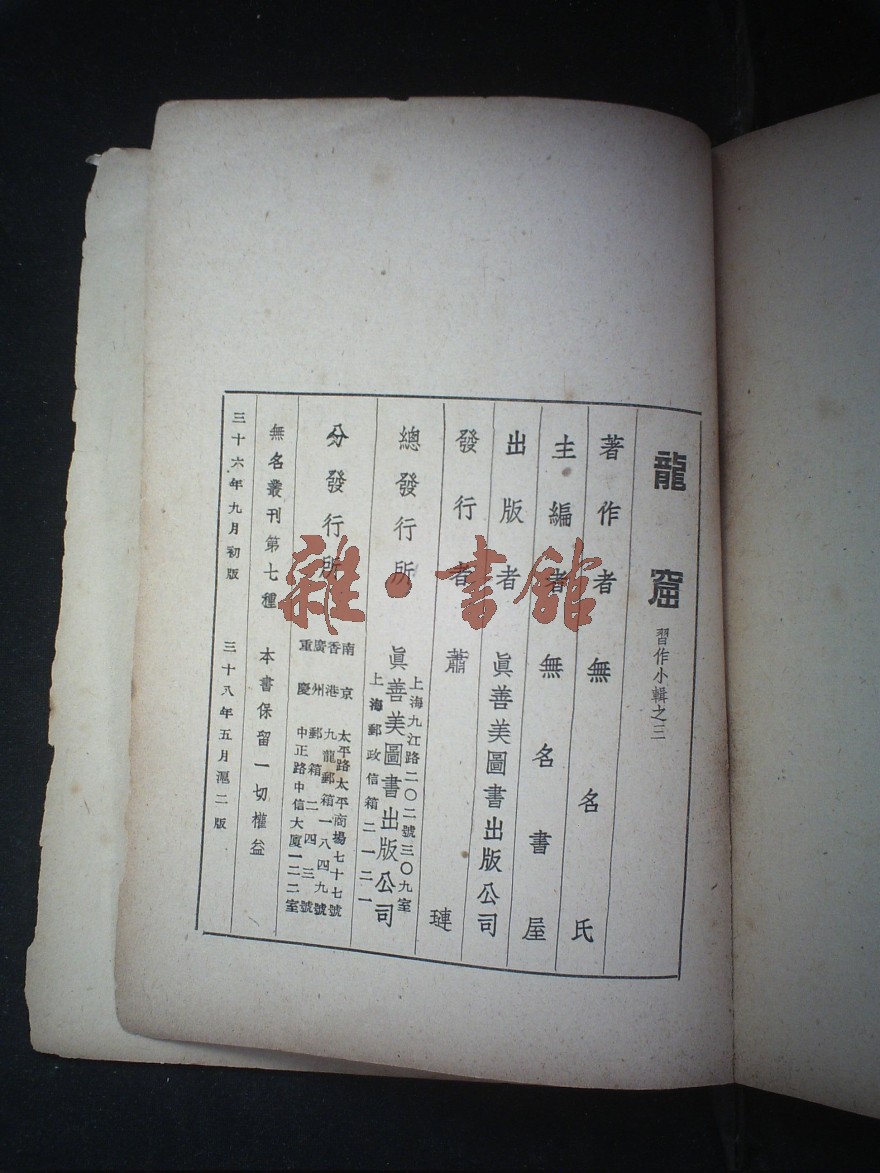 龍窟 習作小輯之三
著作者 無名氏
主編者 無名書屋
出版者 眞善美圖書出版公司
發行者 蕭璉
總發行所 眞善美圖書出版公司
上海九江路二〇二號三〇九室
上海郵政信箱二一二一
分發行所
南京 太平路太平商場七十七號
香港 九龍郵箱一八四九號
廣州 郵箱二四三號
重慶 中正路中信大廈一二二室
無名叢刊第七種 本書保留一切權益
三十六年九月初版 三十八年五月滬二版
雜·書館